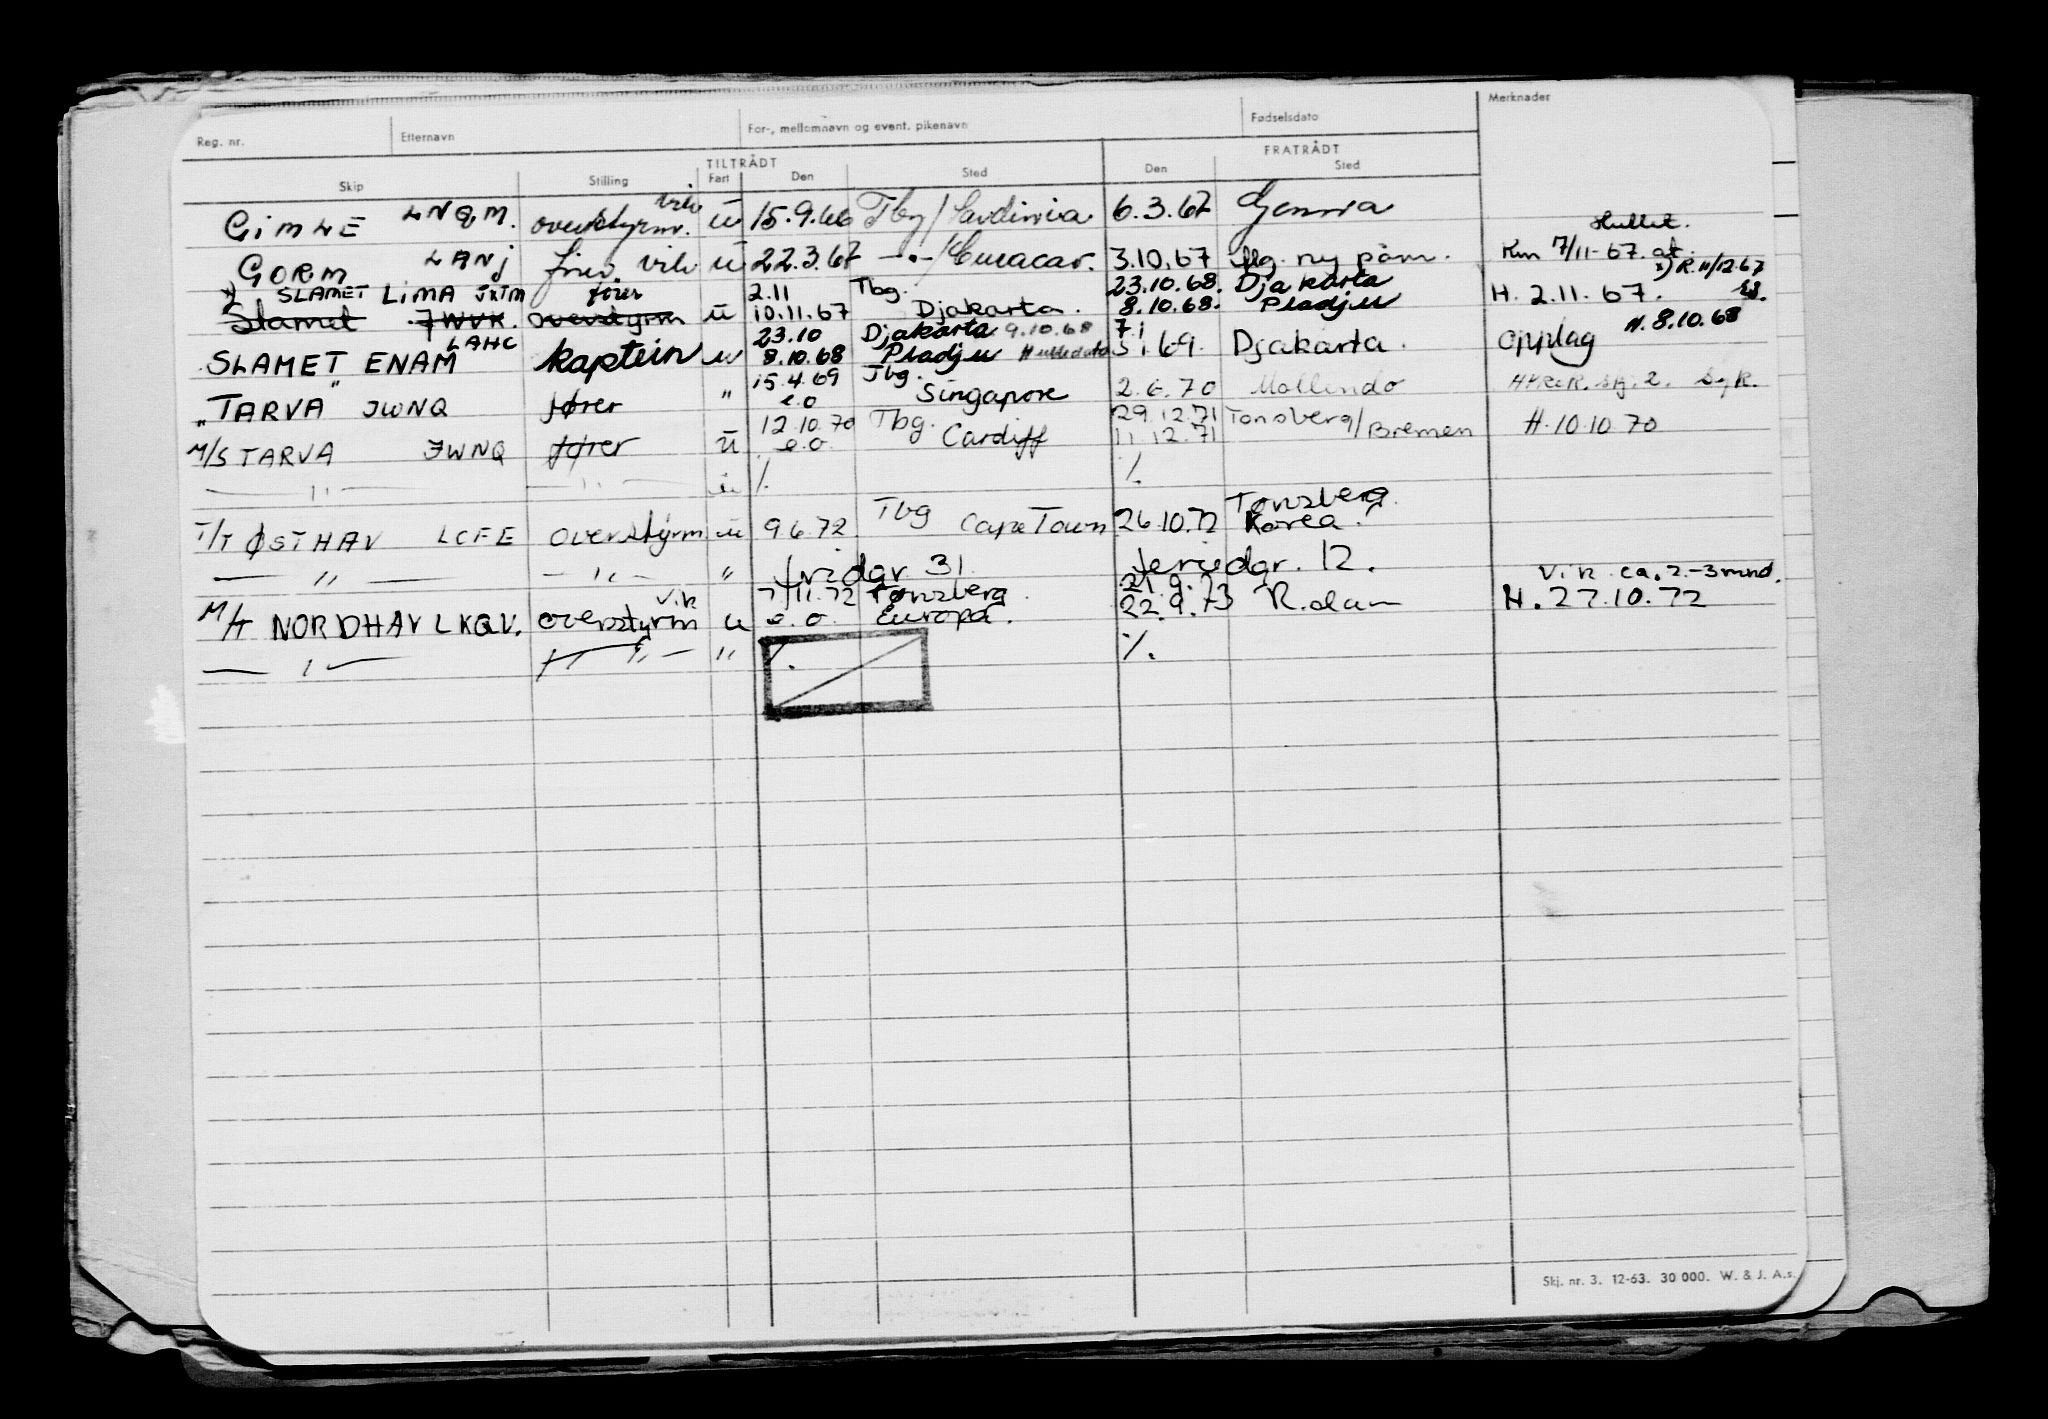 Reg. nr. Efternavn For-, mellomnavn og event. pikenavn Fødselsdato Merknader
TILTRÅDT FRATRÅDT
Skip Stilling Fart Den Sted Den Sted
GIMLE LNQM. overstyrm. vik ū 15.9.66 Tbg/Sardinia 6.3.67 Genova
Hullet.
GORM LANJ vik ū 22.3.67 —"—/Curacao. 3.10.67 ny påm. 7/11-67. at
x) R. 11/12-67
x) SLAMET LIMA JXTM fører 2.11 Tbg. 23.10.68. Djakarta
Slamet JWVK. overstyrm ū 10.11.67 Djakarta. 8.10.68. Pladju H. 2.11.67.
LAHC 23.10 Djakarta 9.10.68 7.1 H. 8.10.68
SLAMET ENAM kaptein u 8.10.68 Pladju Hulledato 5.1.69. Djakarta. Opplag
" TARVA " JWNQ fører " 15.4.69 Tbg.
e.o Singapore 2.6.70 Mollendo
12.10.70 Tbg. 29.12.71 Tønsberg/Bremen H.10.10.70
M/S TARVA JWNQ fører ū e.o. Cardiff 11.12.71
— " — — " — ū %. %.
T/T ØSTHAV LCFE overstyrm ū 9.6.72. Tbg Cape Town 26.10.72 Tønsberg.
Korea.
— " — — " — " fridgr 31 feriedgr. 12.
V.ik ca. 2-3 mnd.
M/T NORDHAV LKQV. overstyrm vik u 7/11.72 Tønsberg. 21.9.
e.o. Europa. 22.9.73 R.dam H. 27.10.72
— " — — " — " %. %.
Skj. nr. 3. 12-63. 30 000. W. & J. A.s.